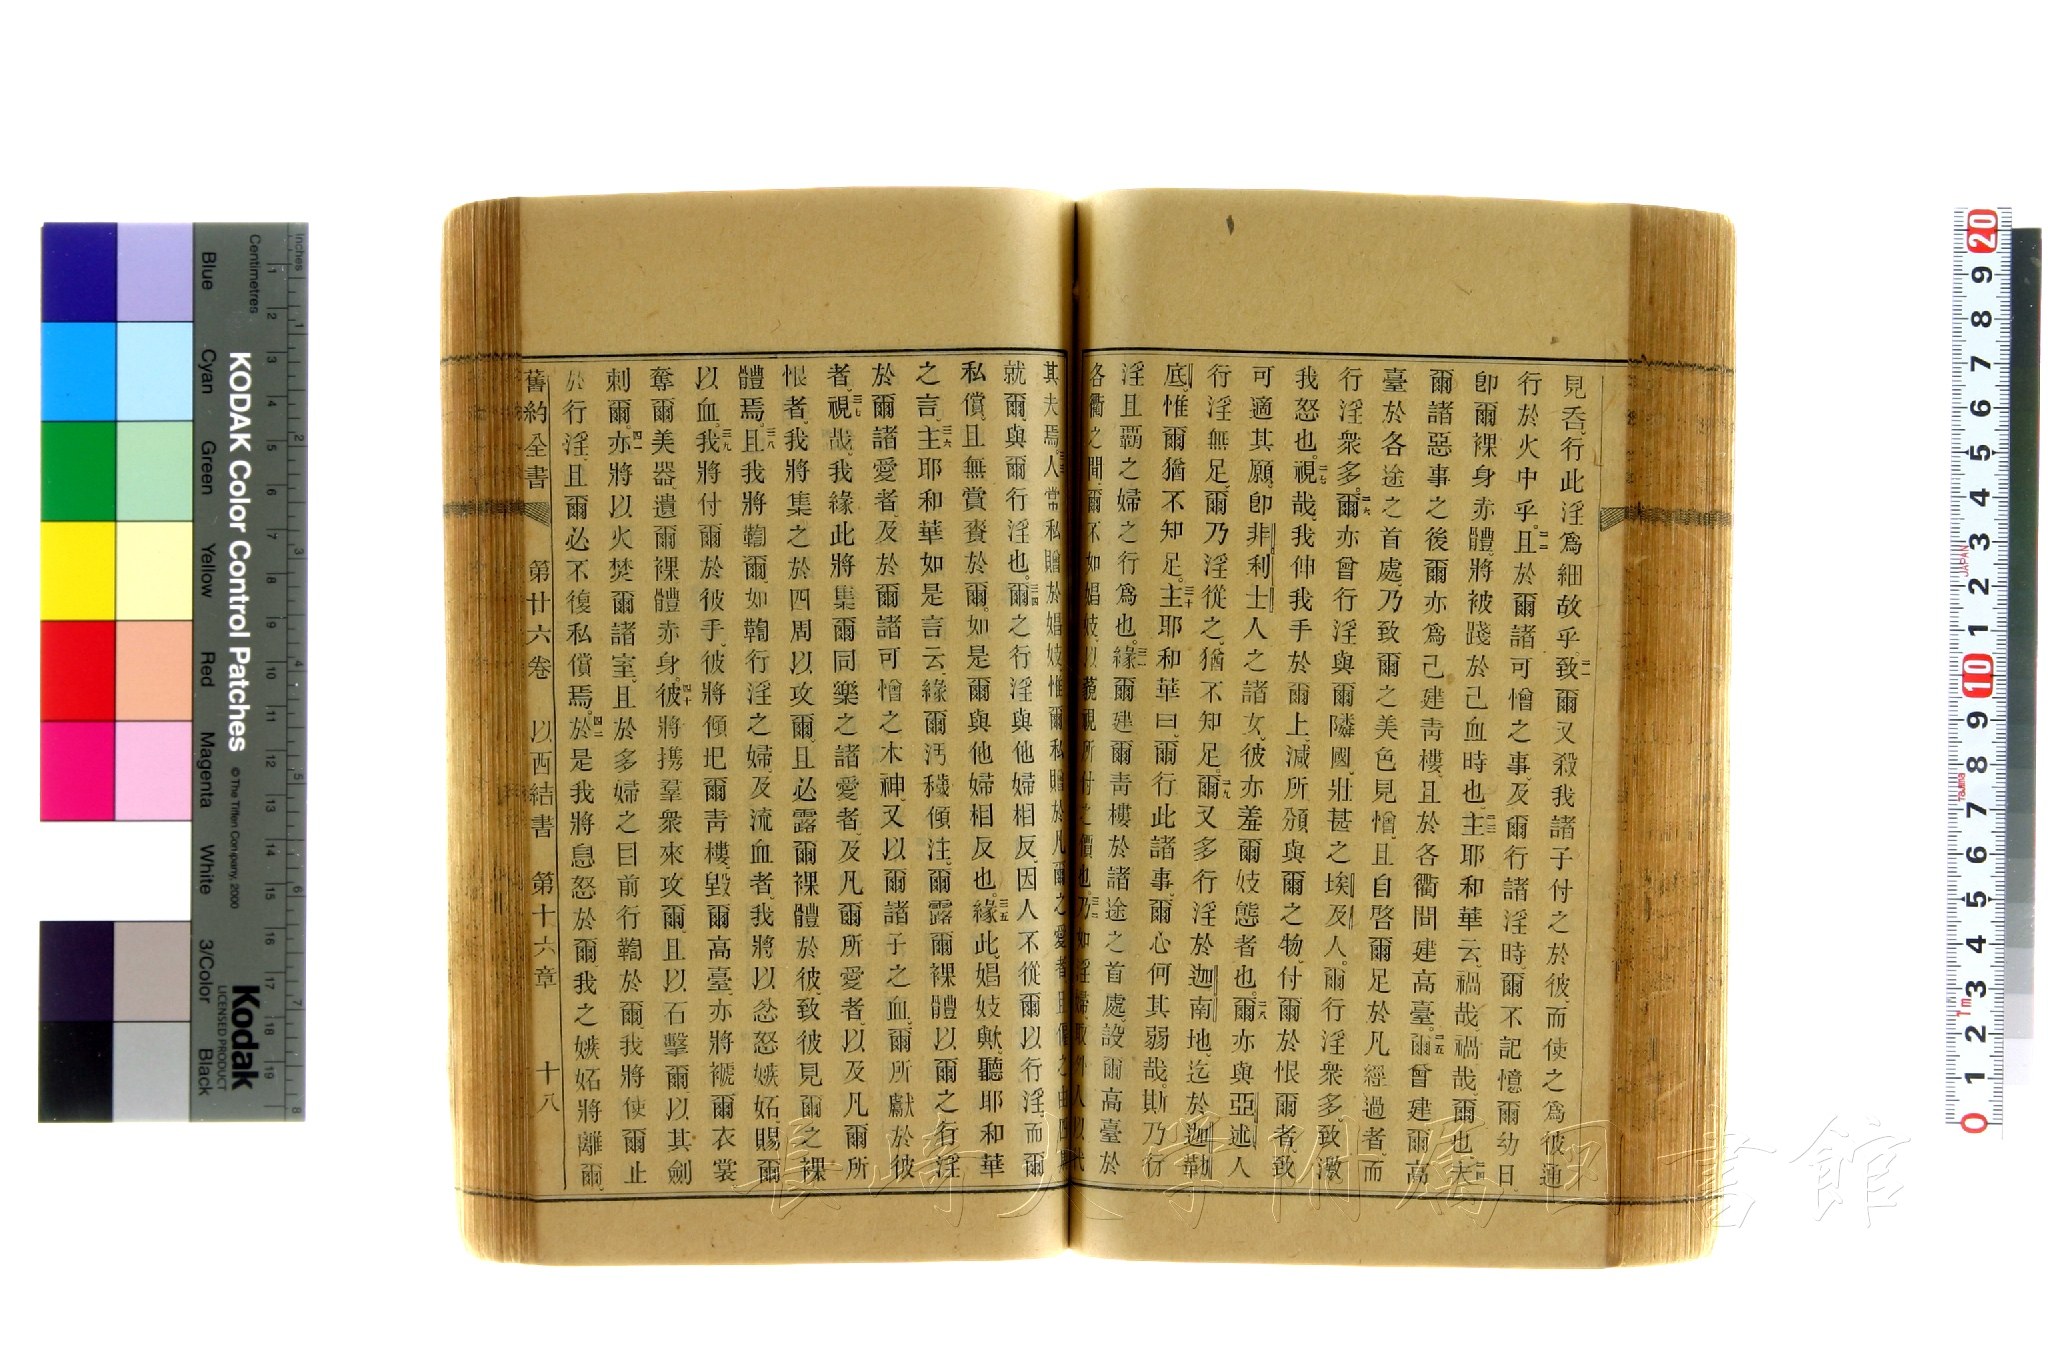 見呑行此淫爲細故乎致爾又殺我諸子付之於彼而使之爲彼通
行於火中乎且於爾諸可憎之事及爾行諸淫時爾不記憶爾幼日
卽爾裸身赤體將被踐於己血時也主耶和華云禍哉禍哉爾也夫
爾諸惡事之後爾亦爲己建靑樓且於各衢間建高臺爾曾建爾高
臺於各途之首處乃致爾之美色見憎且自啓爾足於凡經過者而
行淫衆多爾亦曾行淫與爾隣國壯甚之埃及人爾行淫衆多致激
我怒也視哉我伸我手於爾上減所頒與爾之物付爾於恨爾者致
可適其願卽非利士人之諸女彼亦羞爾妓態者也爾亦與亞述人
行淫無足爾乃淫從之猶不知足爾又多行淫於迦南地迄於迦勒
底惟爾猶不知足主耶和華曰爾行此諸事爾心何其弱哉斯乃行
淫且覇之婦之行爲也緣爾建爾靑樓於諸途之首處設爾高臺於
各衢之間爾不如娼妓以藐視所付之價也乃如淫婦取外人以代
其夫焉人常私贈於娼妓惟爾私贈於凡爾之愛者且
就爾與爾行淫也爾之行淫與他婦相反因人不從爾以行淫而爾
私償且無賞賚於爾如是爾與他婦相反也緣此娼妓歟聽耶和華
之言主耶和華如是言云緣爾汚穢傾注爾露爾裸體以爾之行淫
於爾諸愛者及於爾諸可憎之木神又以爾諸子之血爾所獻於彼
者視哉我緣此將集爾同樂之諸愛者及凡爾所愛者以及凡爾所
恨者我將集之於四周以攻爾且必露爾裸體於彼致彼見爾之裸
體焉且我將鞫爾如鞫行淫之婦及流血者我將以忿怒嫉妬賜爾
以血我將付爾於彼手彼將傾圯爾靑樓毀爾高臺亦將褫爾衣裳
奪爾美器遺爾裸體赤身彼將携羣衆來攻爾且以石擊爾以其劍
刺爾亦將以火焚爾諸室且於多婦之目前行鞫於爾我將使爾止
於行淫且爾必不復私償焉於是我將息怒於爾我之嫉妬將離爾
舊約全書 第廿六卷 以西結書 第十六章 十八
長崎大学附属図書館
KODAK Color Control Patches
©The Tiffen Company, 2000
Kodak
LICENSED PRODUCT
Inches
Centimetres
Blue Cyan Green Yellow Red Magenta White 3/Color Black